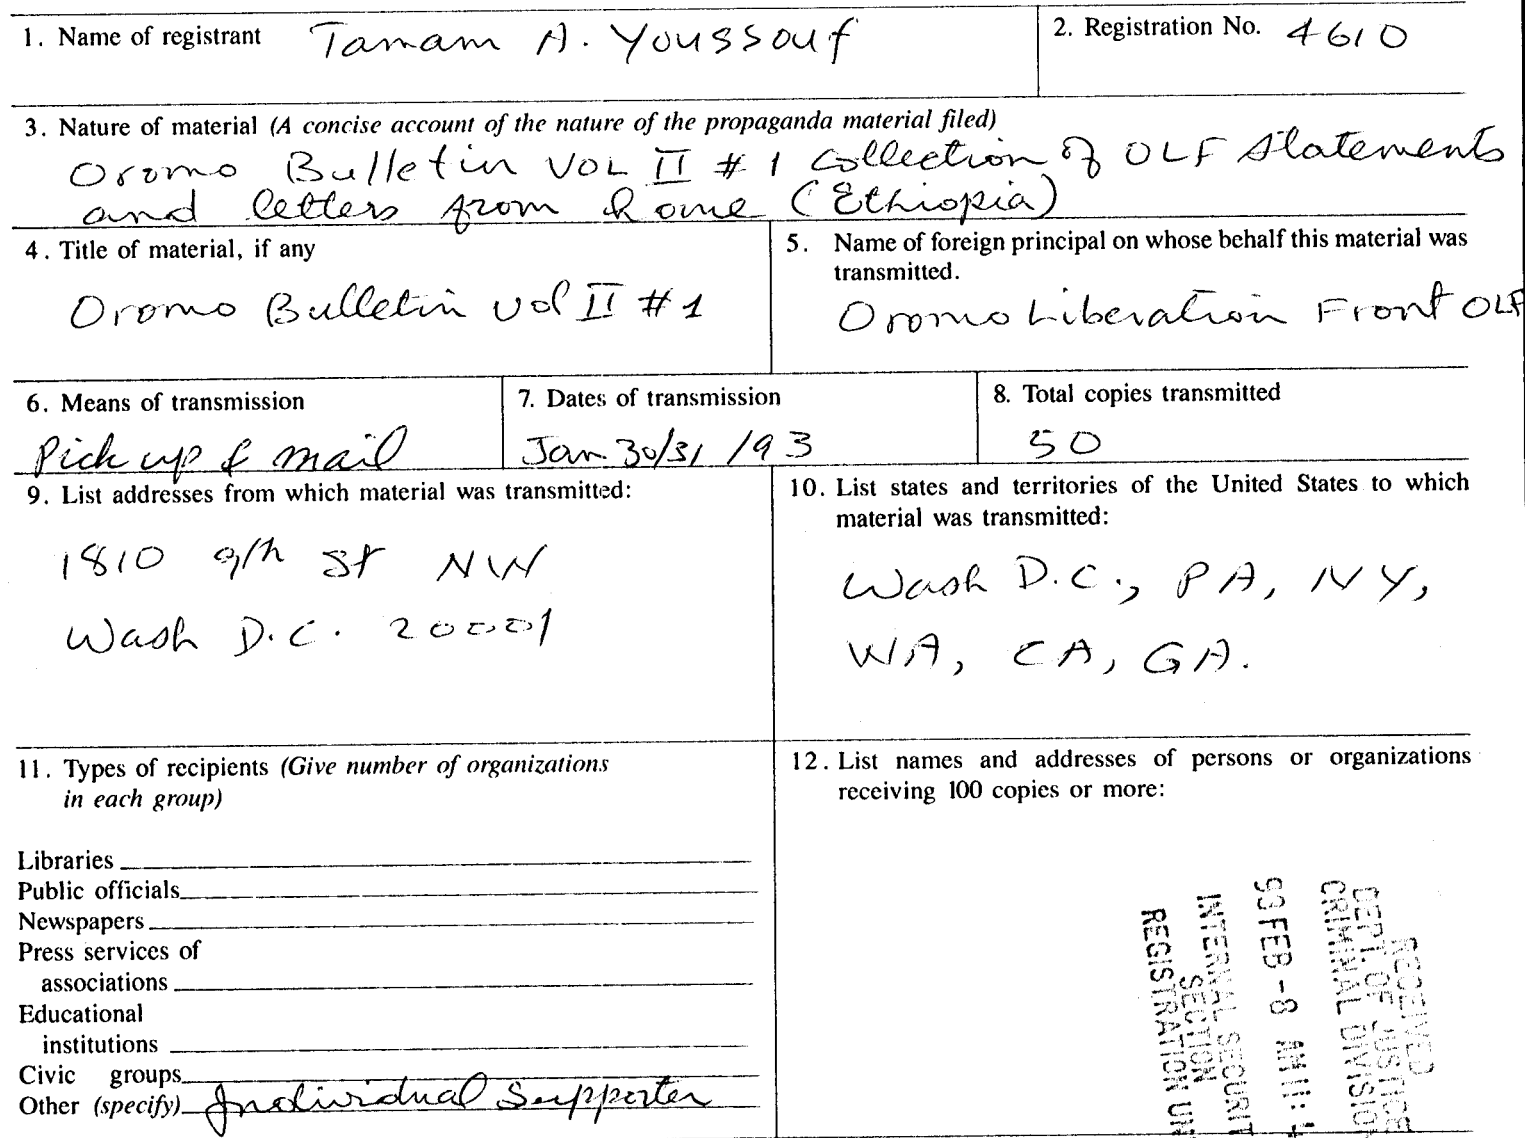 1. Name of registrant Tamam A. Youssouf
2. Registration No. 4610
3. Nature of material (A concise account of the nature of the propaganda material filed)
Oromo Bulletin VOL II # 1 Collection of OLF Statements
and letters from home (Ethiopia)
4. Title of material, if any
Oromo Bulletin Vol II # 1
5. Name of foreign principal on whose behalf this material was
transmitted.
Oromo Liberation Front OLF
6. Means of transmission
Pick up & mail
7. Dates of transmission
Jan. 30/31 /93
8. Total copies transmitted
50
9. List addresses from which material was transmitted:
1810 9th St NW
Wash D.C. 20001
10. List states and territories of the United States to which
material was transmitted:
Wash D.C., PA, NY,
WA, CA, GA.
11. Types of recipients (Give number of organizations
in each group)
Libraries
Public officials
Newspapers
Press services of
associations
Educational
institutions
Civic groups
Other (specify) Individual Supporter
12. List names and addresses of persons or organizations
receiving 100 copies or more:
RECEIVED
DEPT. OF JUSTICE
CRIMINAL DIVISION
93 FEB -8 AM 11:
INTERNAL SECURIT
SECTION
REGISTRATION UN